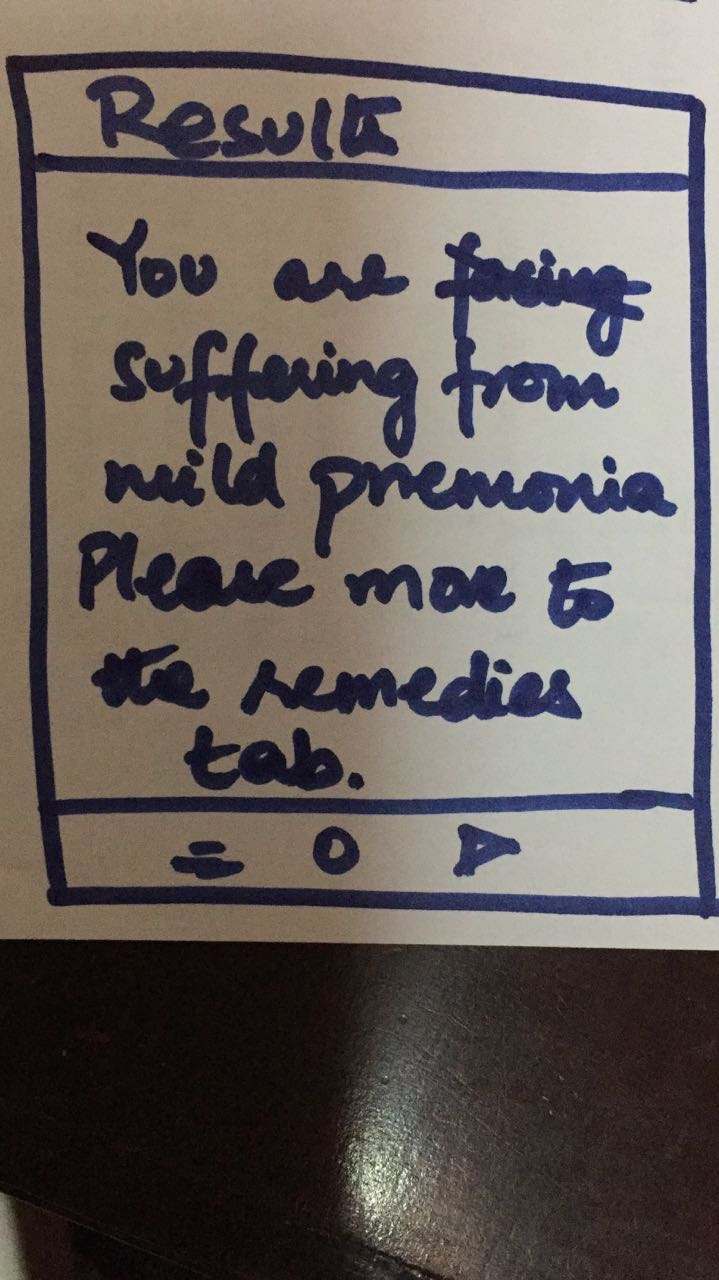 Results
You are facing
suffering from
mild pnemonia
Please move to
the remedies
tab.